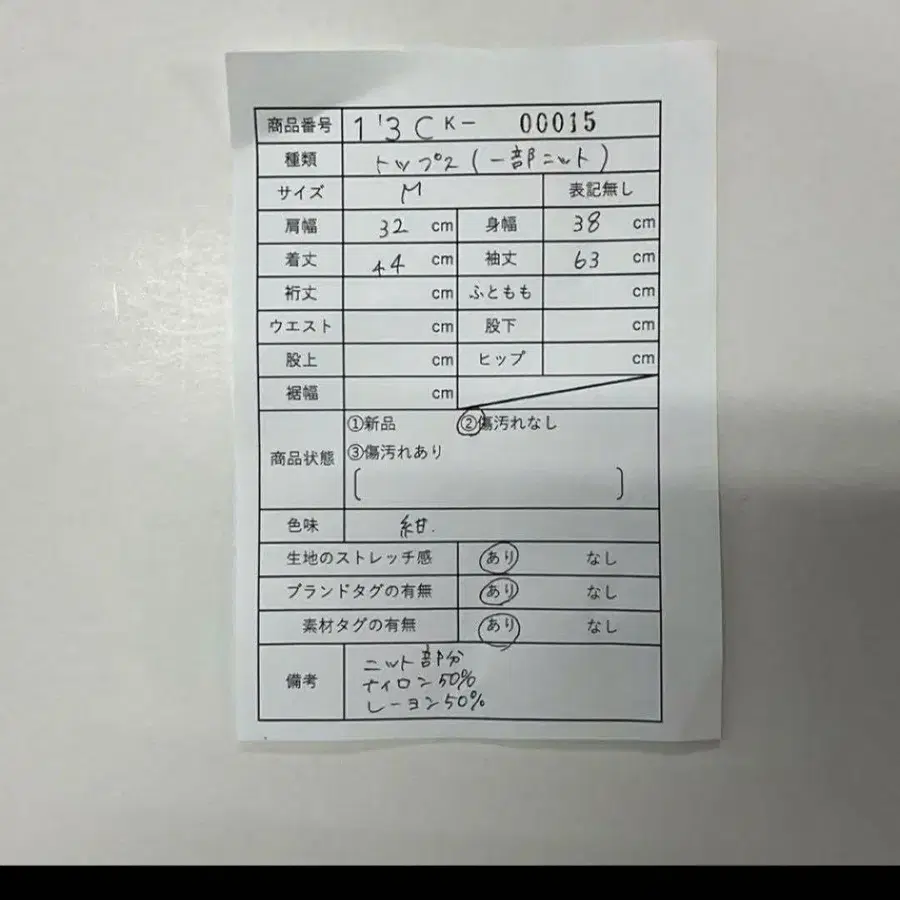 商品番号 1'3C K- 00015
種類 トップス(一部ニット)
サイズ M 表記無し
肩幅 32 cm 身幅 38 cm
着丈 44 cm 袖丈 63 cm
裄丈 cm ふともも cm
ウエスト cm 股下 cm
股上 cm ヒップ cm
裾幅 cm
商品状態 ①新品 ②傷汚れなし
③傷汚れあり
色味 紺.
生地のストレッチ感 あり なし
ブランドタグの有無 あり なし
素材タグの有無 あり なし
備考 ニット部分
ナイロン50%
レーヨン50%